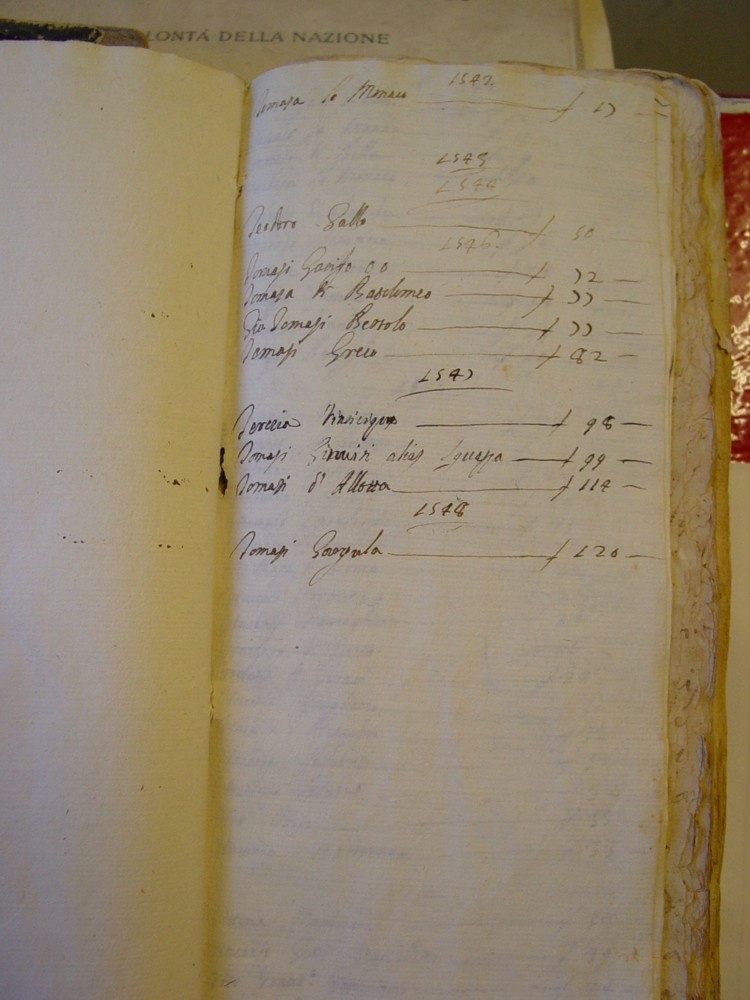 LONTÁ DELLA NAZIONE
1542
Tomasa lo Monaco f 17
1543
1544
Teodoro Gallo f 50
1546
Tomasi f 72
Tomasa di Bartolomeo f 77
Gio Tomasi Bertolo f 77
Tomasi Greco f 82
1547
f 98
Tomasi alias f 99
Tomasi d' Allotta f 114
1548
Tomasi f 120